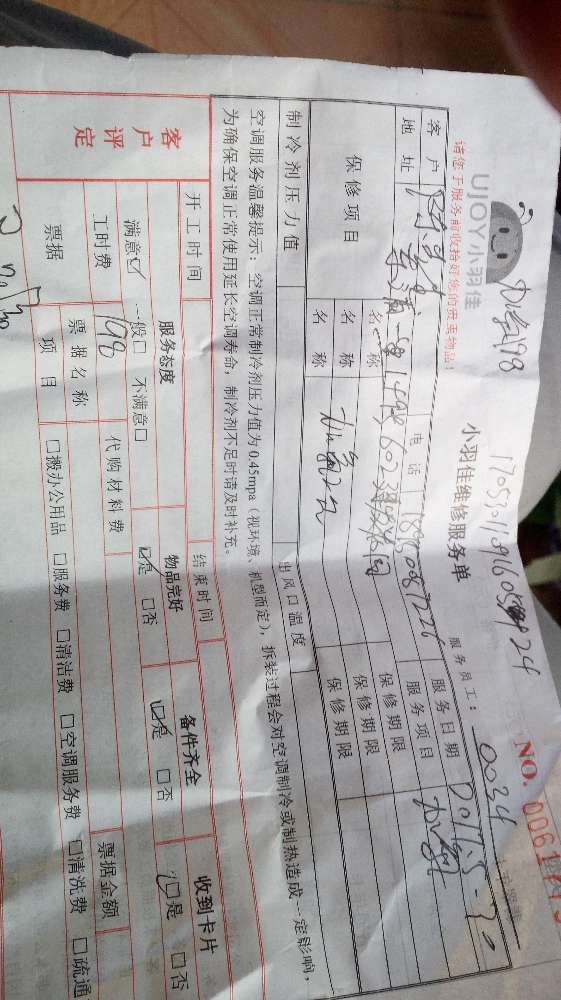 加氟198
UJOY小羽佳
请您于服务前收拾好您的贵重物品！
小羽佳维修服务单
服务员工： 0034
NO. 006
客户 电话 服务日期 2017.5-30
地址 服务项目 加氟
保修项目 名称 保修期限
名称 保修期限
名称 加氟 保修期限
制冷剂压力值 出风口温度
空调服务温馨提示：空调正常制冷剂压力值为0.45mpa（视环境、机型而定），拆装过程会对空调制冷或制热造成一定影响，
为确保空调正常使用延长空调寿命，制冷剂不足时请及时补充。
开工时间 结束时间
客户评定 服务态度 物品完好 备件齐全 收到卡片
满意☑ 一般□ 不满意□ ☑是 □否 ☑是 □否 ☑是 □否
工时费 198 代购材料费 票据金额
票据 票据名称
项目 □搬办公用品 □服务费 □清洁费 □空调服务费 □清洗费 □疏通